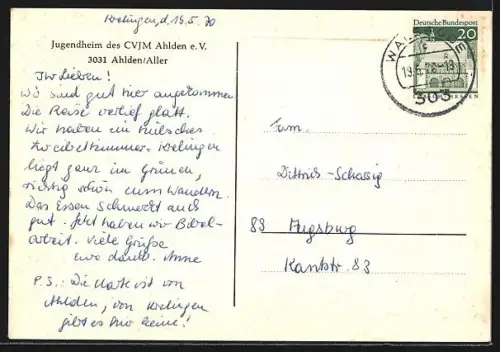 Krelingen, d. 19.5.70
Jugendheim des CVJM Ahlden e.V.
3031 Ahlden/Aller
Ihr Lieben!
Wir sind gut hier angekommen.
Die Reise verlief glatt.
Wir haben ein hübsches
Zweibettzimmer. Krelingen
liegt ganz im Grünen,
richtig schön zum Wandern.
Das Essen schmeckt auch
gut. Jetzt haben wir Bibel-
arbeit. Viele Grüße
Anne
P.S.: Die Karte ist von
Ahlden, von Krelingen
gibt es hier keine!
Deutsche Bundespost
20
WALSRODE
303
Fam.
Dittrich-
89 Augsburg
Kantstr. 83